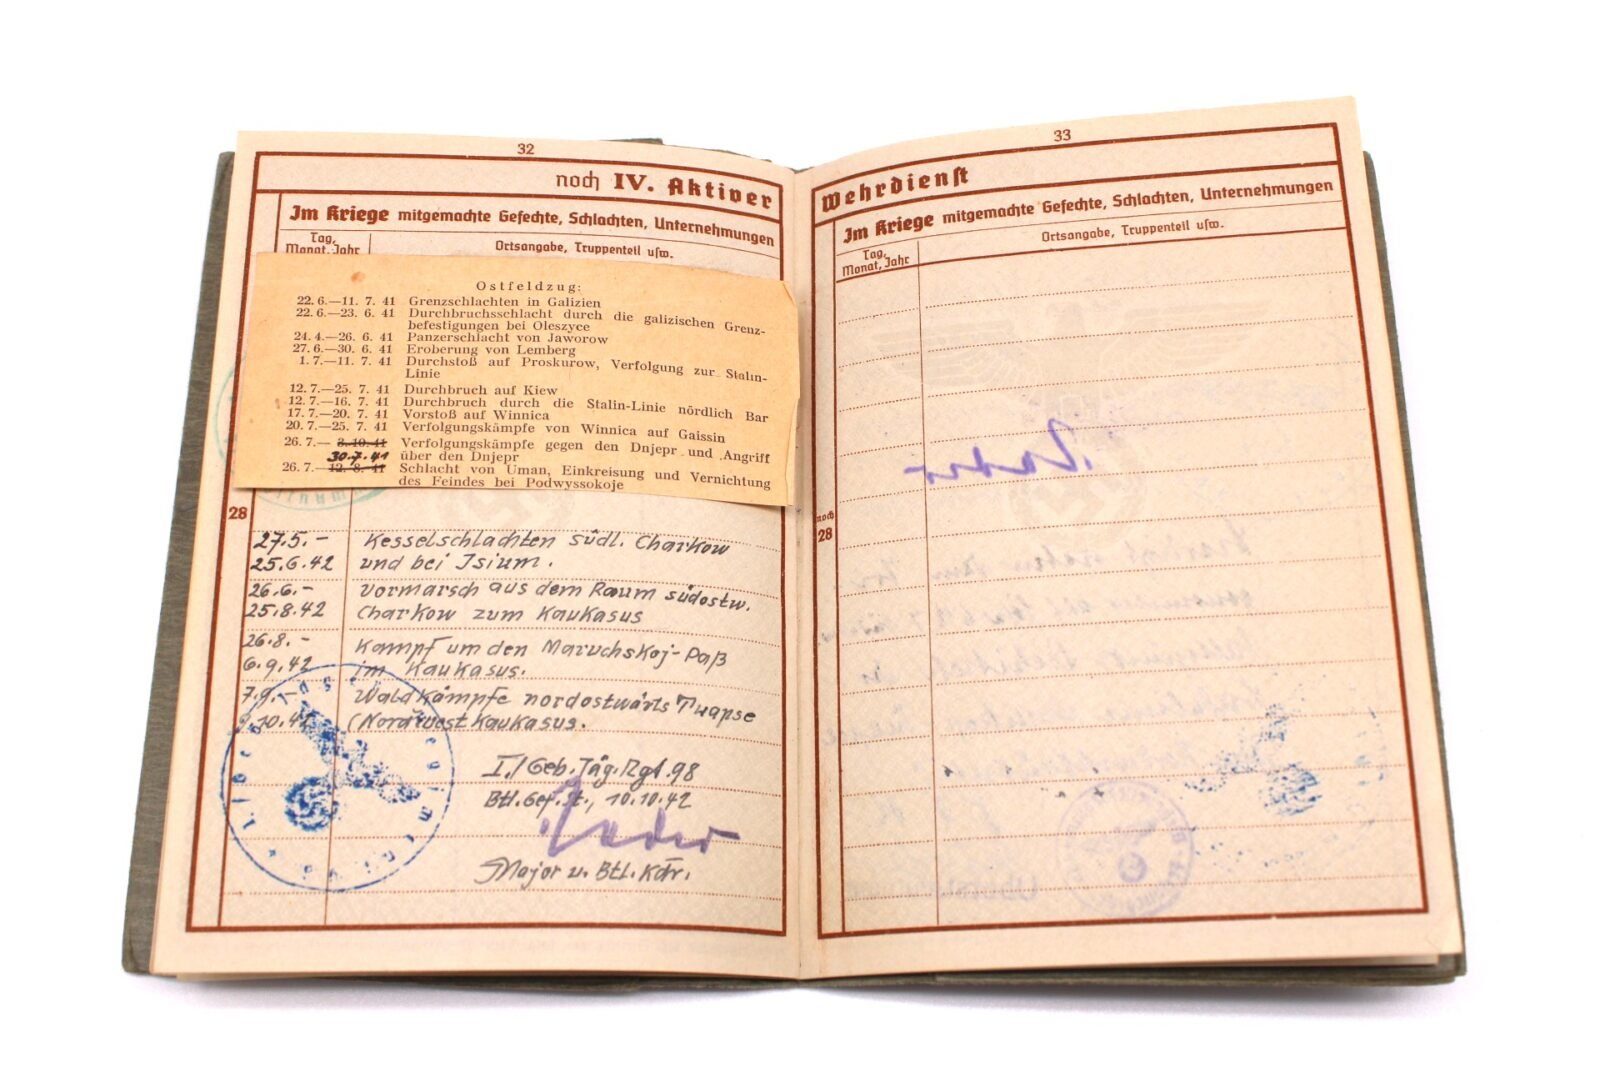 32
noch IV. Aktiver
Im Kriege mitgemachte Gefechte, Schlachten, Unternehmungen
Tag, Monat, Jahr
Ortsangabe, Truppenteil usw.
Ostfeldzug:
22. 6.—11. 7. 41 Grenzschlachten in Galizien
22. 6.—23. 6. 41 Durchbruchsschlacht durch die galizischen Grenz-
befestigungen bei Oleszyce
24. 4.—26. 6. 41 Panzerschlacht von Jaworow
27. 6.—30. 6. 41 Eroberung von Lemberg
1. 7.—11. 7. 41 Durchstoß auf Proskurow, Verfolgung zur Stalin-
Linie
12. 7.—25. 7. 41 Durchbruch auf Kiew
12. 7.—16. 7. 41 Durchbruch durch die Stalin-Linie nördlich Bar
17. 7.—20. 7. 41 Vorstoß auf Winnica
20. 7.—25. 7. 41 Verfolgungskämpfe von Winnica auf Gaissin
26. 7.— 3. 10. 41 Verfolgungskämpfe gegen den Dnjepr und Angriff
30.7.41 über den Dnjepr
26. 7.—12. 8. 41 Schlacht von Uman, Einkreisung und Vernichtung
des Feindes bei Podwyssokoje
28
27.5.- Kesselschlachten südl. Charkow
25.6.42 und bei Isium.
26.6.- Vormarsch aus dem Raum südostw.
25.8.42 Charkow zum Kaukasus
26.8.- Kampf um den Maruchskoj-Paß
6.9.42 im Kaukasus.
7.9.- Waldkämpfe nordostwärts Tuapse
9.10.42 (Nordwestkaukasus.
I./Geb.Jäg.Rgt.98
Btl.Gef.St., 10.10.42
Major u. Btl.Kdr.
33
Wehrdienst
Im Kriege mitgemachte Gefechte, Schlachten, Unternehmungen
Tag, Monat, Jahr
Ortsangabe, Truppenteil usw.
noch
28